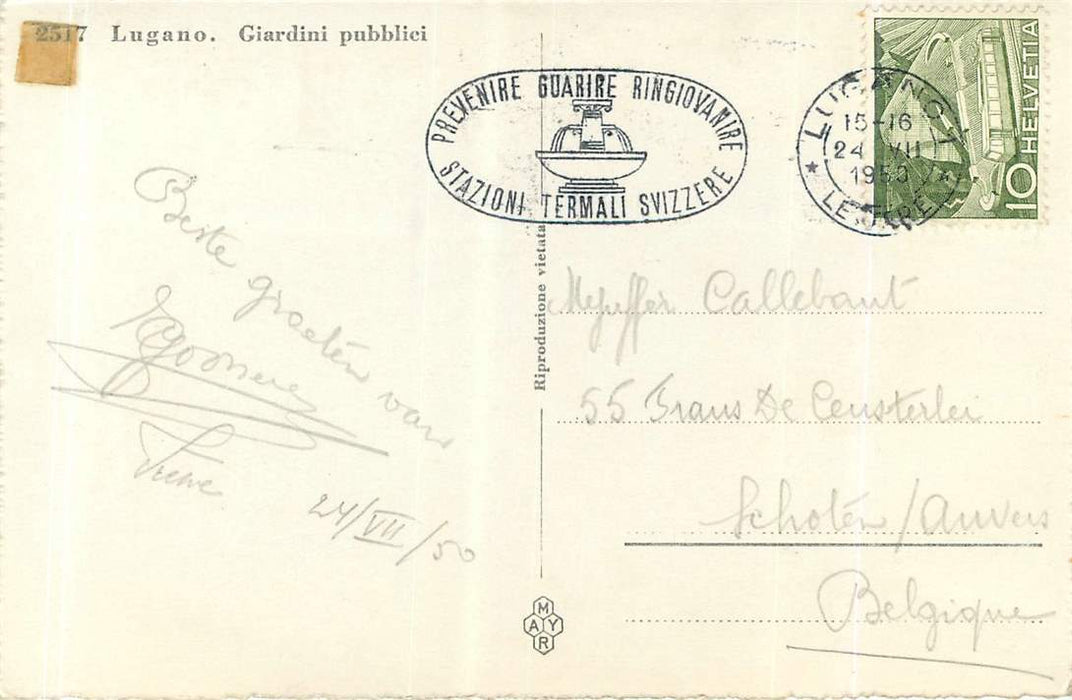 2517 Lugano. Giardini pubblici
PREVENIRE GUARIRE RINGIOVANIRE
STAZIONI TERMALI SVIZZERE
LUGANO 1
15-16
24 VII
1950
LETTERE
HELVETIA
10
Beste groeten van
24/VII/50
Riproduzione vietata
MAYR
Mejuffer Callebaut
55 Frans De
Schoten / Anvers
Belgique